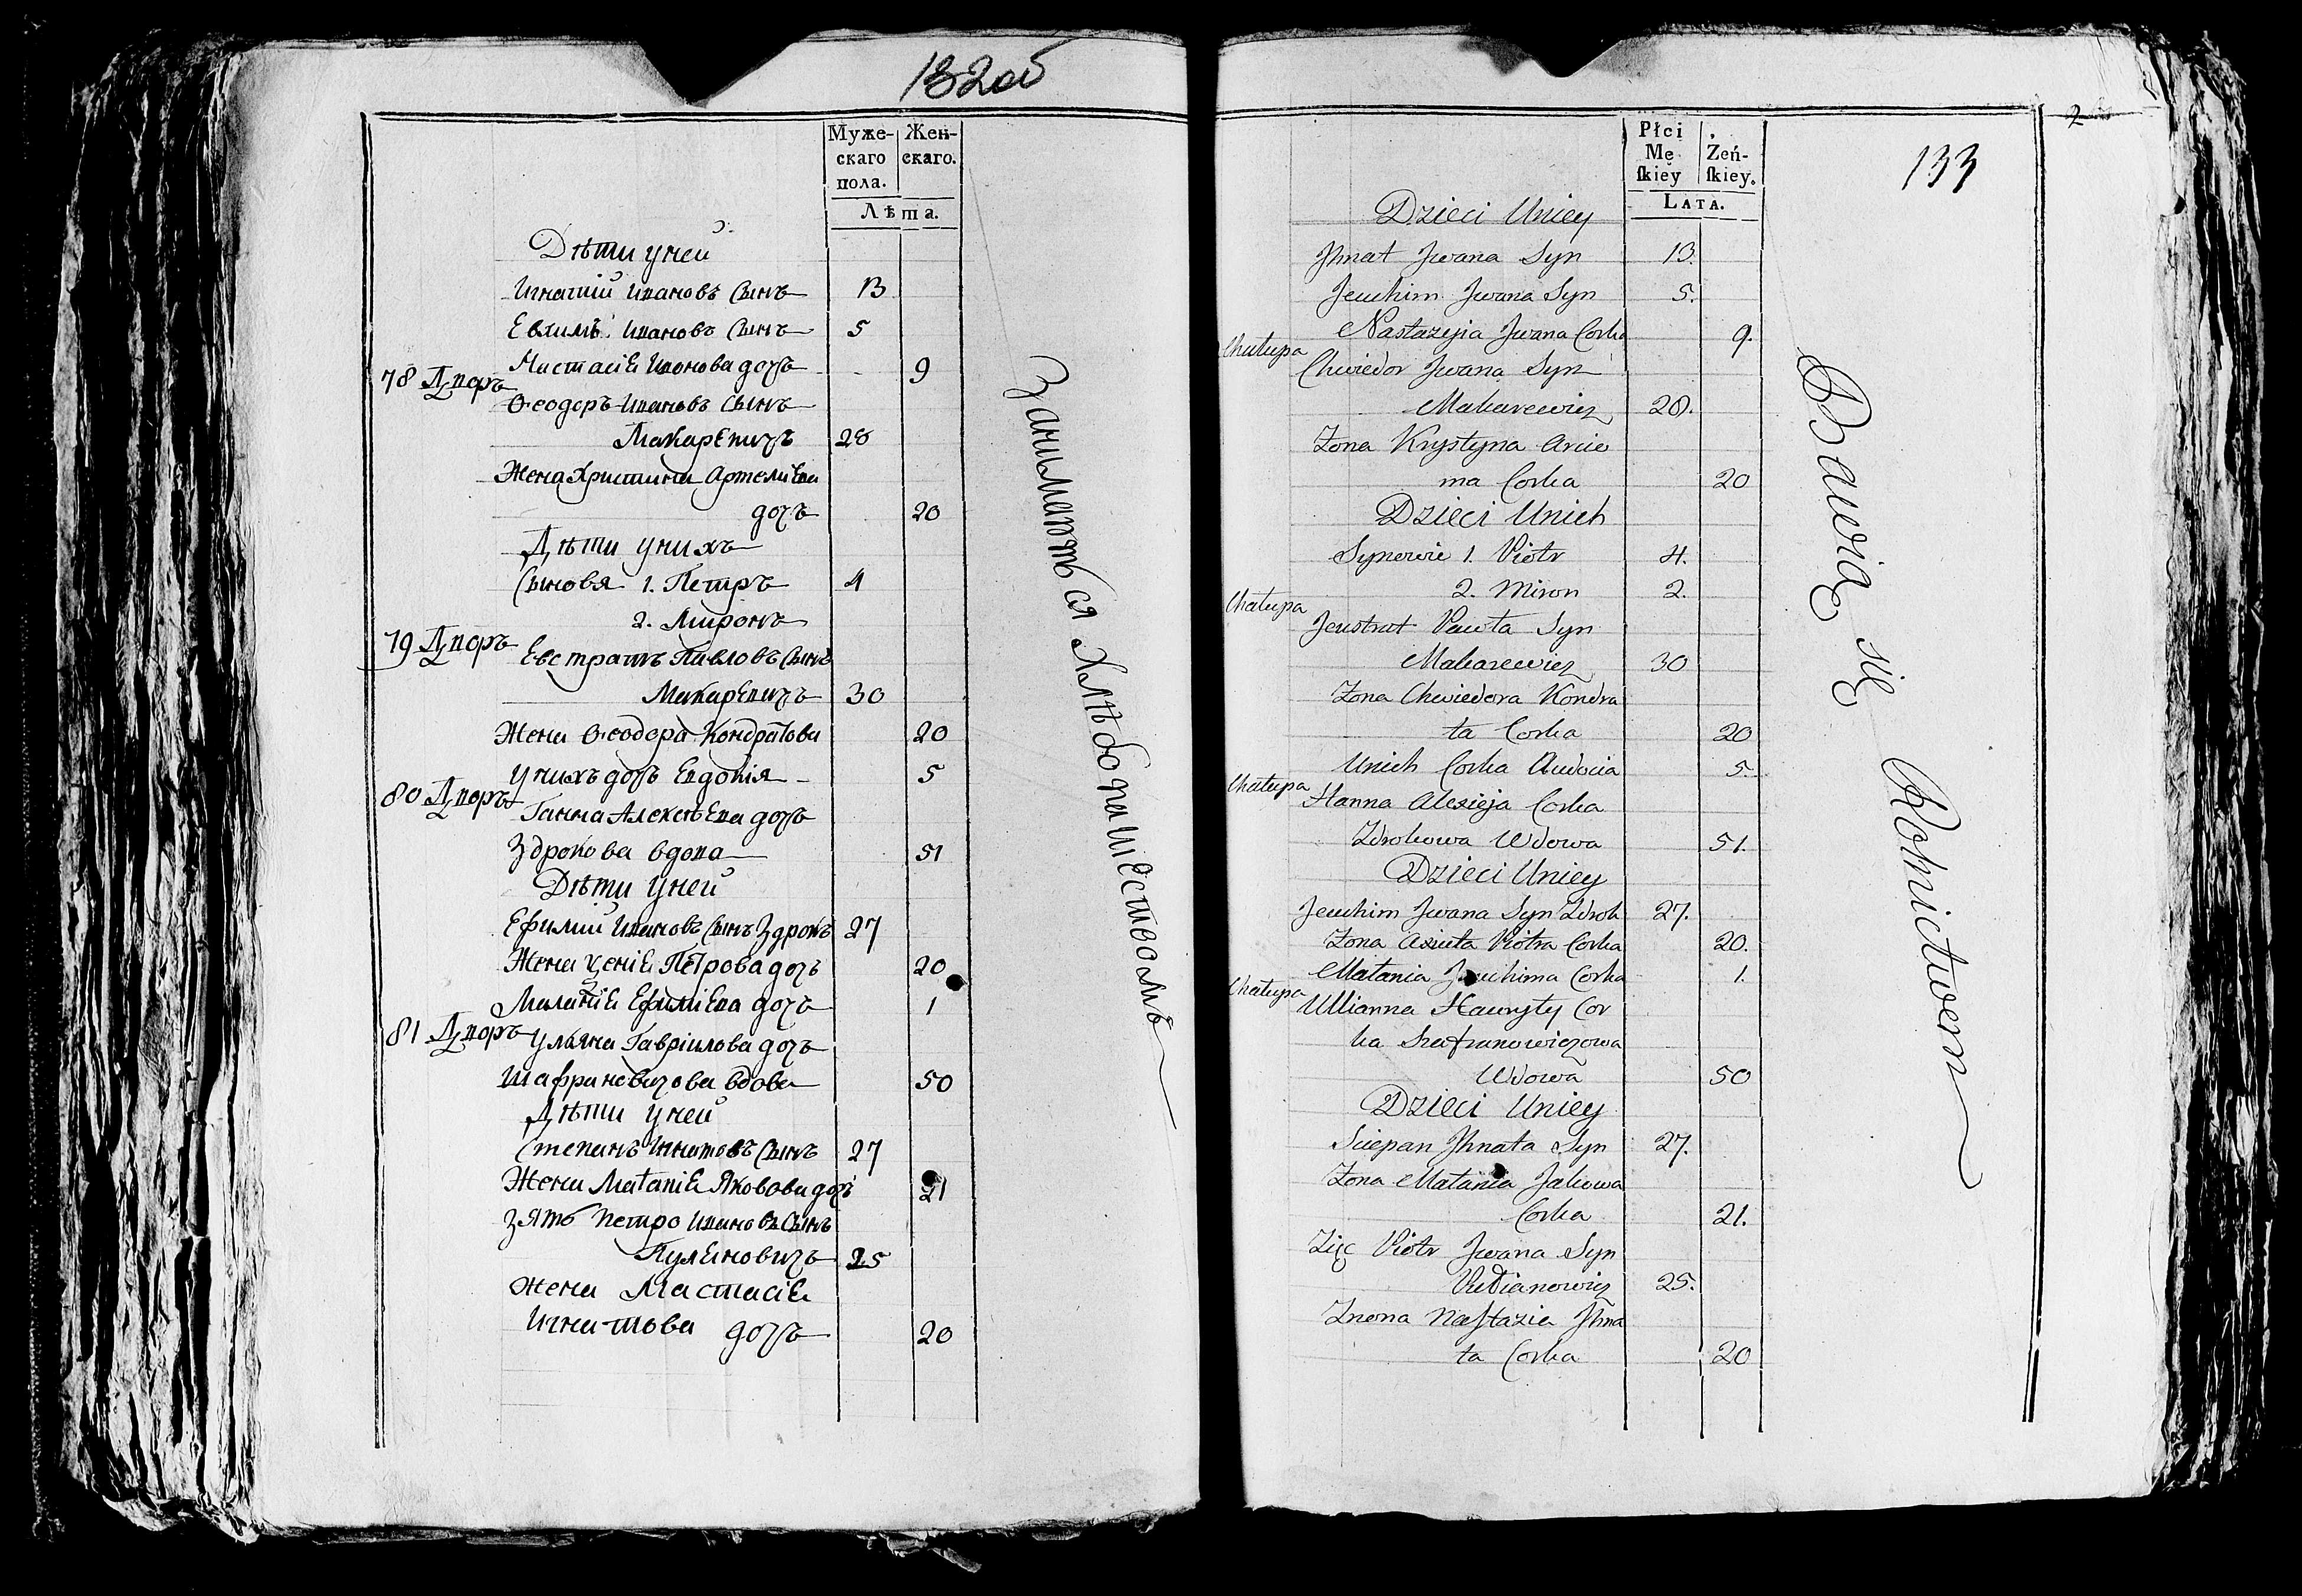 132об
Муже-
скаго
пола.
Жен-
скаго.
Лѣта.
Дѣти уней
Игнатій Ивановъ Сынъ 13
Евхимъ Ивановъ Сынъ 5
Настасіе Иванова дочъ 9
78 Дворъ
Ѳеодоръ Ивановъ Сынъ
Макаревичъ 28
Жена Христина Артеміева
дочъ 20
Дѣти унихъ
Сыновя 1. Петръ 4
2. Миронъ
79 Дворъ
Евстратъ Павловъ Сынъ
Макаревичъ 30
Жена Ѳеодора Кондратова 20
унихъ дочъ Евдокія 5
80 Дворъ
Ганна Алексѣева дочъ
Здрокова вдова 51
Дѣти уней
Ефимій Ивановъ Сынъ Здрокъ 27
Жена Петрова дочъ 20
Маланіе Ефиміева дочъ 1
81 Дворъ
Уляна Гавріилова дочъ
Шафрановичова вдова 50
Дѣти уней
Степанъ Игнатовъ Сынъ 27
Жена Маланіе Яковова дочъ 21
Зять Петро Ивановъ Сынъ
25
Жена Настасіе
Игнатова дочъ 20
Занимаютъся Хлѣбопашествомъ
2
133
Płci
Mę
ſkiey
Żeń-
ſkiey.
LATA.
Dzieci Uniey
Jhnat Jwana Syn 13.
Jewchim Jwana Syn 5.
Nastazyia Jwana Corka 9.
Chałupa
Chwiedor Jwana Syn
Makarewicz 28.
Zona Krystyna Arcio
ma Corka 20
Dzieci Unich
Synowie 1. Piotr 4.
2. Miron 2.
Chałupa
Jewstrat Pawła Syn
Makarewicz 30
Zona Chwiedora Kondra
ta Corka 20
Unich Corka Audocia 5.
Chałupa
Hanna Alexieja Corka
Zdrokowa Wdowa 51.
Dzieci Uniey
Jewchim Jwana Syn Zdrok 27.
Zona Axiuta Piotra Corka 20.
Małania Jewchima Corka 1.
Chałupa
Ullianna Hawryły Cor
ka Szafranowiczowa
Wdowa 50
Dzieci Uniey
Sciepan Jhnata Syn 27.
Zona Małania Jakowa
Corka 21.
Zięc Piotr Jwana Syn
25.
Znona Naſtazia Jhna
ta Corka 20
Bawią się Rolnictwem